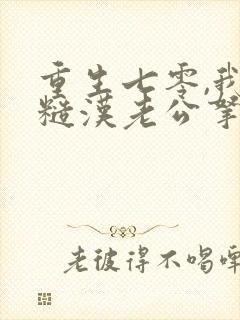 重生七零,我
糙漢老公寧
老彼得不喝啤